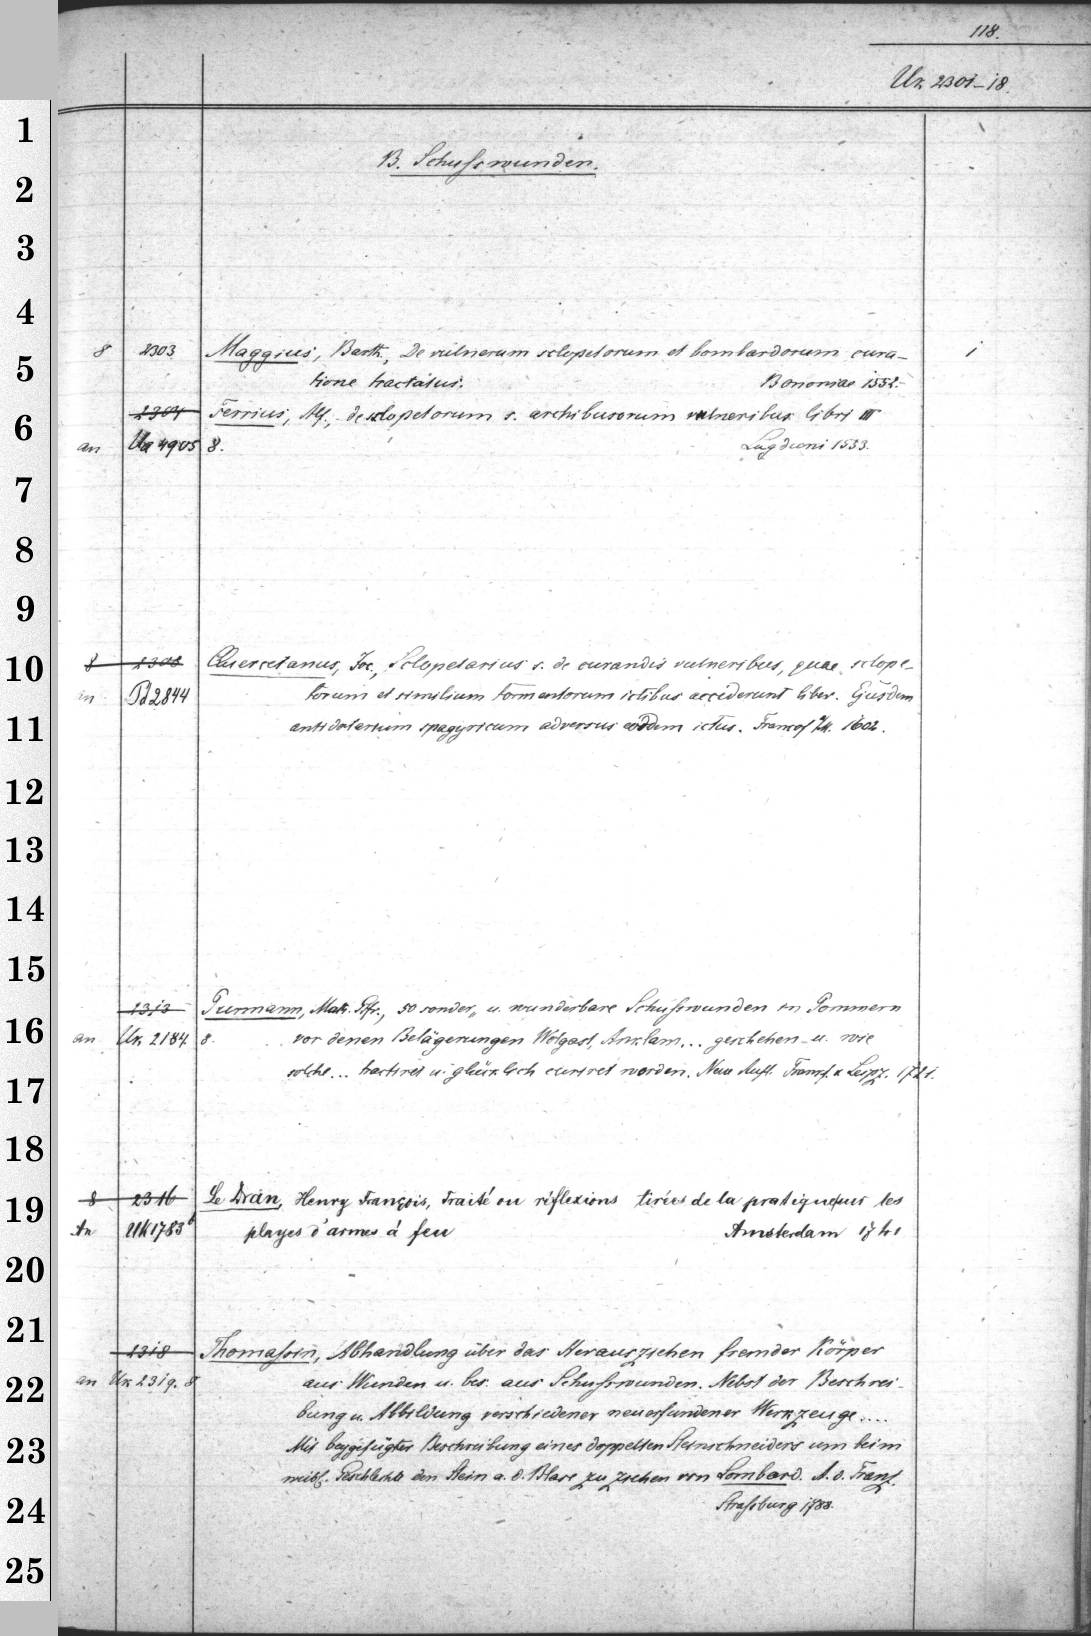 118.
Uz 2301-18.
B. Schusswunden.
8 2303 Maggius, Barth., De vulnerum sclopetorum et bombardorum cura-
tione tractatus. Bononiae 1552.
2304 Ferrius, Alf., de sclopetorum s. archibusorum vulneribus libri III
an 4905 8. Lugduni 1553.
8 2308 Quercetanus, Jos., Sclopetarius s. de curandis vulneribus, quae sclope-
in Pd 2844 torum et similium tormentorum ictibus acciderunt liber. Ejusdem
antidotarium spagyricum adversus eosdem ictus. Francof 1602.
1
2313 Purmann, Math. Gfr., 50 sonder- u. wunderbare Schusswunden in Pommern
an Uz 2184 8. vor denen Belägerungen Wolgast, Anklam... geschehen u. wie
solche... tractiret u. glücklich curiret worden. Neue Aufl. Franckf. & Leipz. 1721.
8 2316 Le Dran, Henry François, Traité ou réflexions tirées de la pratique sur les
An 1783 playes d'armes á feu Amsterdam 1741
2318 Thomassin, Abhandlung über das Herausziehen fremder Körper
an Uz 2319. 8 aus Wunden u. bes. aus Schusswunden. Nebst der Beschrei-
bung u. Abbildung verschiedener neuerfundener Werkzeuge....
Mit beygefügter Beschreibung eines doppelten Steinschneiders um beim
weibl. Geschlechte den Stein a. d. Blase zu ziehen von Lombard. A. d. Franz.
Strassburg 1788.
1
2
3
4
5
6
7
8
9
10
11
12
13
14
15
16
17
18
19
20
21
22
23
24
25